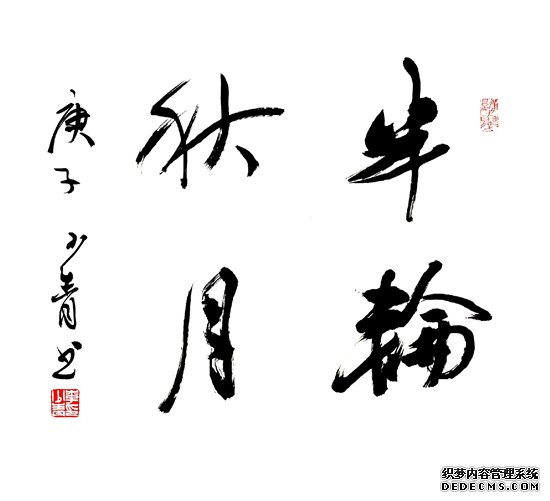 半輪
秋月
庚子 少青书
织梦内容管理系统
DEDECMS.COM